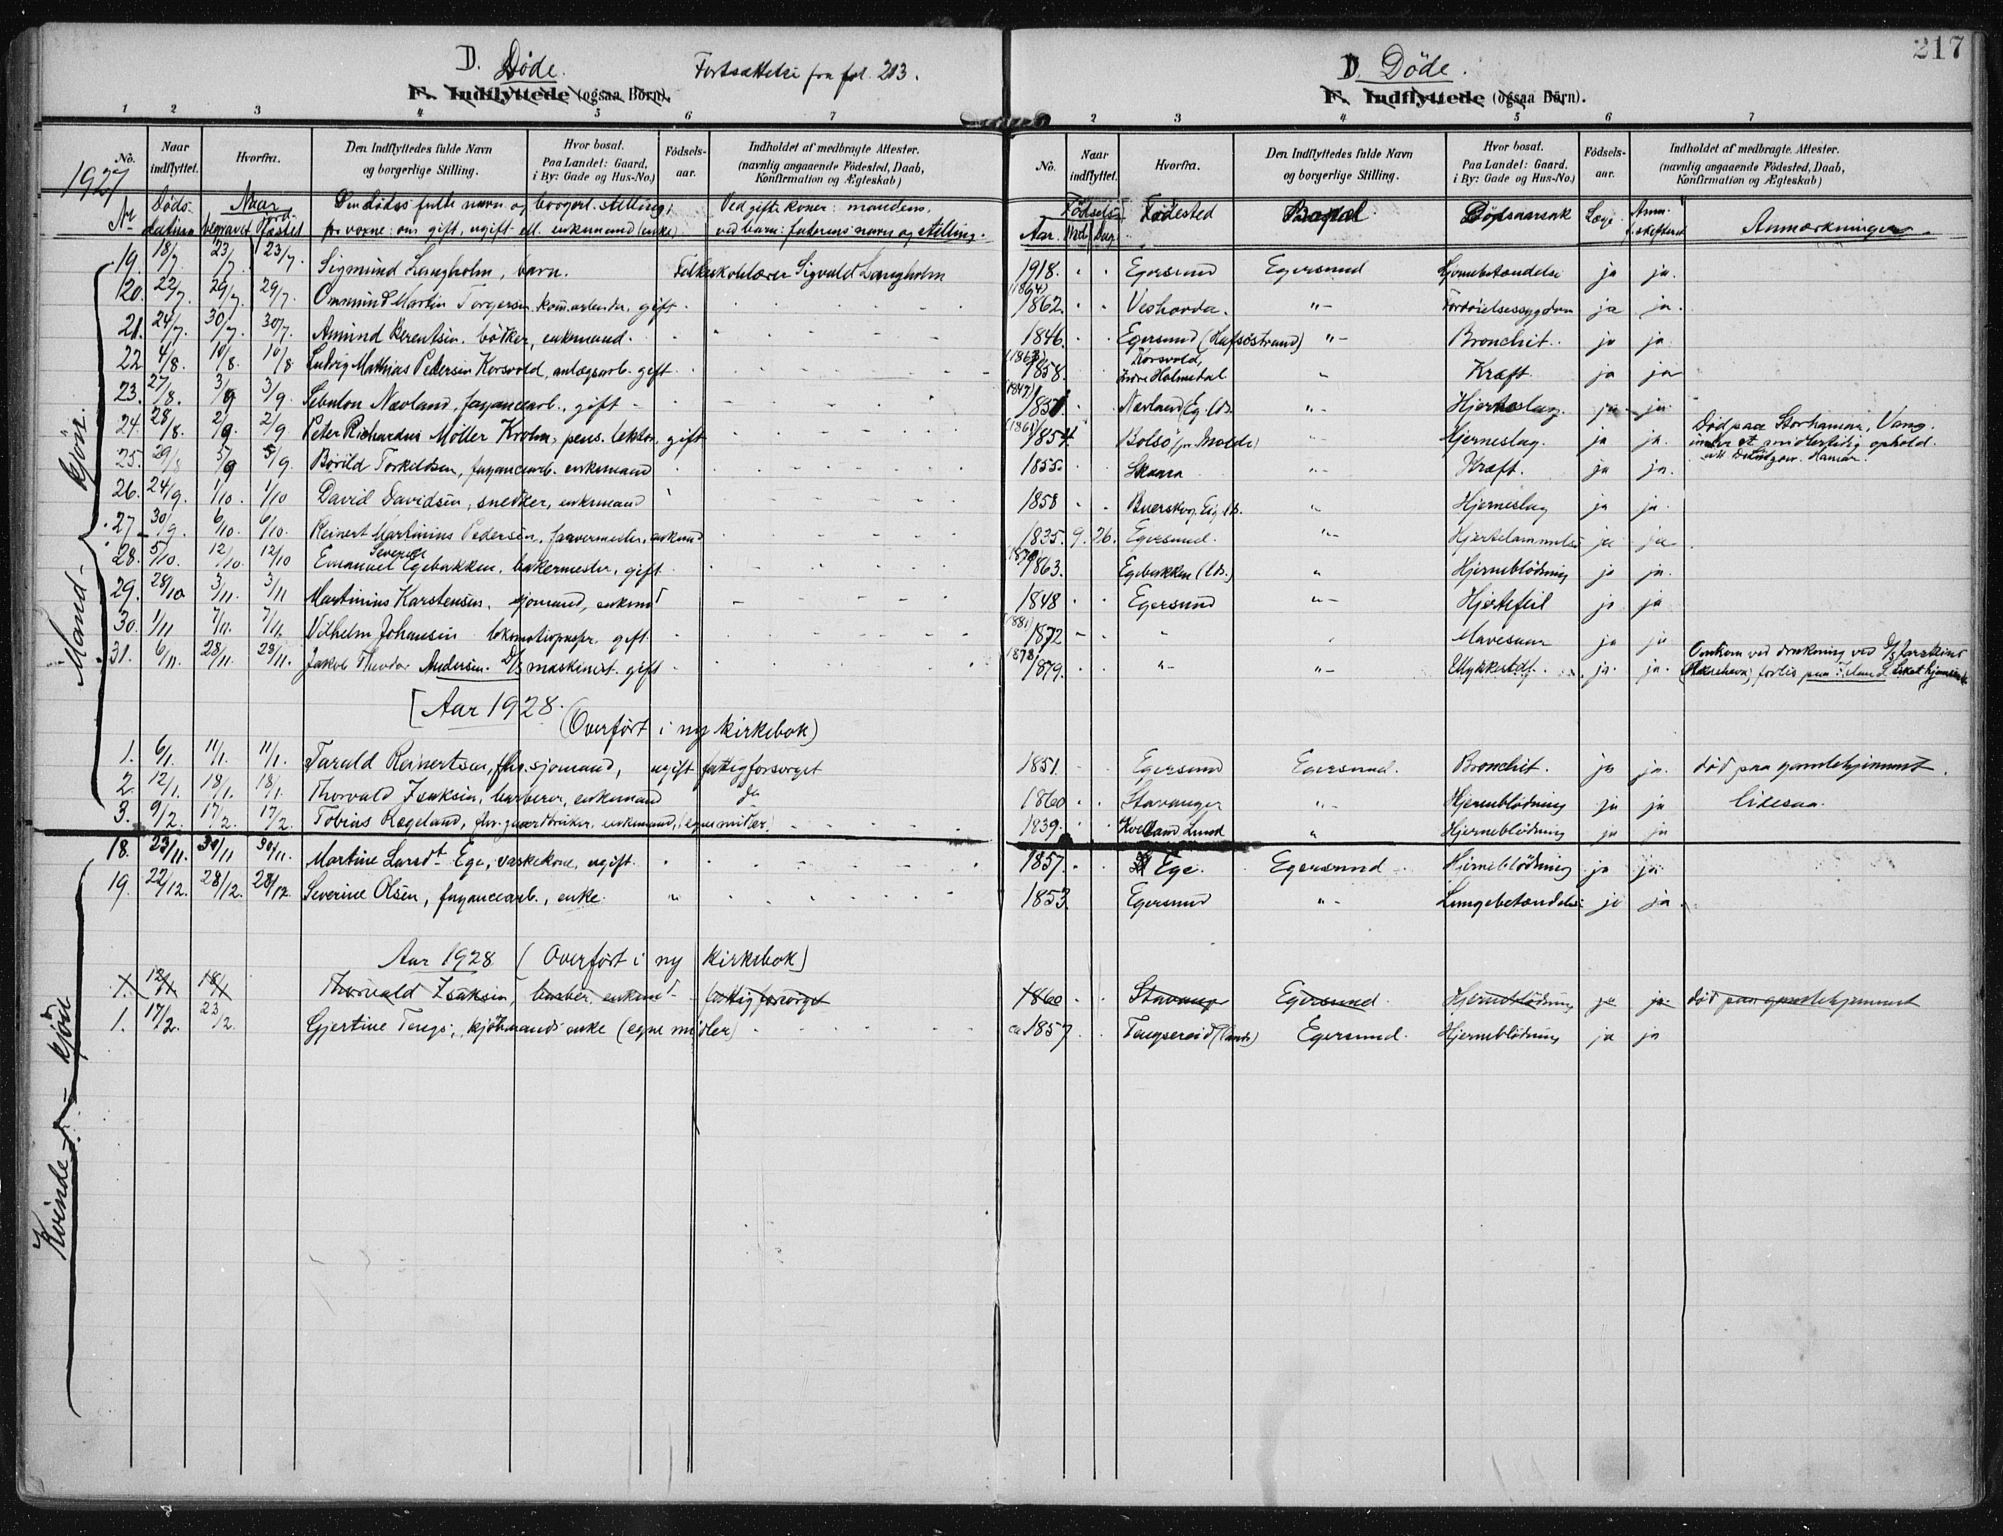 217
D. Døde. Fortsættelse fra fol. 213.
F. Indflyttede (ogsaa Børn).
D. Døde.
F. Indflyttede (ogsaa Børn).
1 2 3 4 5 6 7
2 3 4 5 6 7
No. Naar indflyttet. Hvorfra. Den Indflyttedes fulde Navn og borgerlige Stilling. Hvor bosat. Paa Landet: Gaard, i By: Gade og Hus-No.) Fødsels-aar. Indholdet af medbragte Attester. (navnlig angaaende Fødested, Daab, Konfirmation og Ægteskab)
No. Naar indflyttet. Hvorfra. Den Indflyttedes fulde Navn og borgerlige Stilling. Hvor bosat. Paa Landet: Gaard, i By: Gade og Hus-No.) Fødsels-aar. Indholdet af medbragte Attester. (navnlig angaaende Fødested, Daab, Konfirmation og Ægteskab)
1927
Nr Døds-datum Naar begravet jord-fæstet Den dødes fulde navn og borgerl. stilling, for voxne: om gift, ugift ell. enkemand (enke) Ved gifte koner: mandens, ved barn: faderens navn og stilling.
Fødsels Aar Md. Dag Fødested Bopæl Dødsaarsak Læge Anm. Anmærkninger
Mand-kjøn.
19. 18/7 23/7 23/7. Sigmund Langholm, barn. Sigvald Langholm 1918 Egersund Egersund Hjernebetændelse ja ja.
20. 22/7. 29/7 29/7. Ommund Martin Torgersen, gift (1864) 1862. Veshovda. "- ja ja.
21. 24/7. 30/7. 30/7. Amund Berentsen. bødker, enkemand. 1846. Egersund (Hafsøstrand) "- Bronchit. ja ja.
22. 4/8. 10/8. 10/8 Ludvig Mathias Pedersen Korsvold, anlægsarb. gift (1863) 1858. Korsvold, Indre Holmedal " Kræft. ja ja
23. 27/8. 3/9 3/9. Sebulon Nævland, fayancearb., gift (1847) 1851. Nævland (Eg. Lds. "- Hjerteslag. ja ja.
24. 28/8. 2/9 2/9 Peter Richardus Møller Krohn, pens. lektor, gift (1861) 1854 Bolsø (pr. Molde) "- Hjerneslag. ja ja. Død paa Storhamar, Vang. under et midlertidig ophold.
25. 29/8 5/9 5/9. Børild Torkildsen, fayancearb. enkemand 1855 Skaara "- Kræft. ja ja.
26. 24/9. 1/10. 1/10 David Davidsen, snedker, enkemand 1858 " Hjerneslag ja ja.
27. 30/9. 6/10. 6/10. Reinert Martinius Pedersen, farvermester, enkmd 1835. 9. 26. Egersund. "- Hjertelammelse ja ja.
28. 5/10. 12/10. 12/10 Emanuel Severin Egebakken, bakermester, gift. 1863. Egebakken (Lds.) " Hjerneblødning ja ja.
29. 28/10 3/11. 3/11 Martinius Karstensen, sjømand, enkemd 1848 Egersund "- Hjertefeil ja ja
30. 1/11 7/11. 7/11. Vilhelm Johansen lokomotivpusser, gift. (1881) 1872 " Mavesaar ja ja
31. 6/11. 28/11. 28/11. Jakob Theodor Andersen. D/S maskinist. gift (1878) 1879. "- "- Ulykkestilf. ja ja. Omkom ved drukning ved forlis paa Island
[ Aar 1928.
(Overført i ny kirkebok)
1. 6/1. 11/1. 11/1. Tarald Reinertsen, fhv. sjømand, ugift fattigforsørget 1851. Egersund Egersund. Bronchit. ja ja. død paa gamlehjemmet.
2. 12/1. 18/1. 18/1. Thorvald Isaksen, barberer, enkemand do 1860 Stavanger "- Hjerneblødning ja ja lidesaa.
3. 9/2. 17/2. 17/2. Tobias Rægeland, fhv. gaardbruker, enkemand, (egne midler) 1839. Lund " Hjerneblødning ja ja
Kvinde-kjøn
18. 23/11. 30/11 30/11. Martine Larsdt Ege, vaskekone, ugift. 1857. Ege. Egersund Hjerneblødning ja ja.
19. 22/12. 28/12. 28/12. Severine Olsen, fayancearb., enke. 1853. Egersund "- Lungebetændelse ja ja.
Aar 1928 (Overført i ny kirkebok)
1. 12/1 18/1 Thorvald Isaksen, barber. enkemd fattigforsørget 1860 Stavanger Egersund Hjerneblødning ja ja død paa gamlehjemmet
1. 17/2. 23/2. Gjertine Tengs, kjøbmands enke (egne midler) ca 1857 Tengsereid (Lands) Egersund. Hjerneblødning ja ja